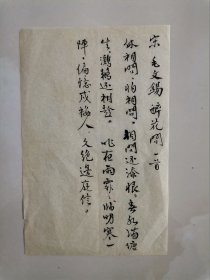 宋·毛文錫 醉花間 一首
休相問，怕相問，相問还添恨。春水滿塘
生，鸂鶒还相趁。 昨夜雨霏霏，临明寒一
陣，偏憶戍楼人，久絕邊庭信。